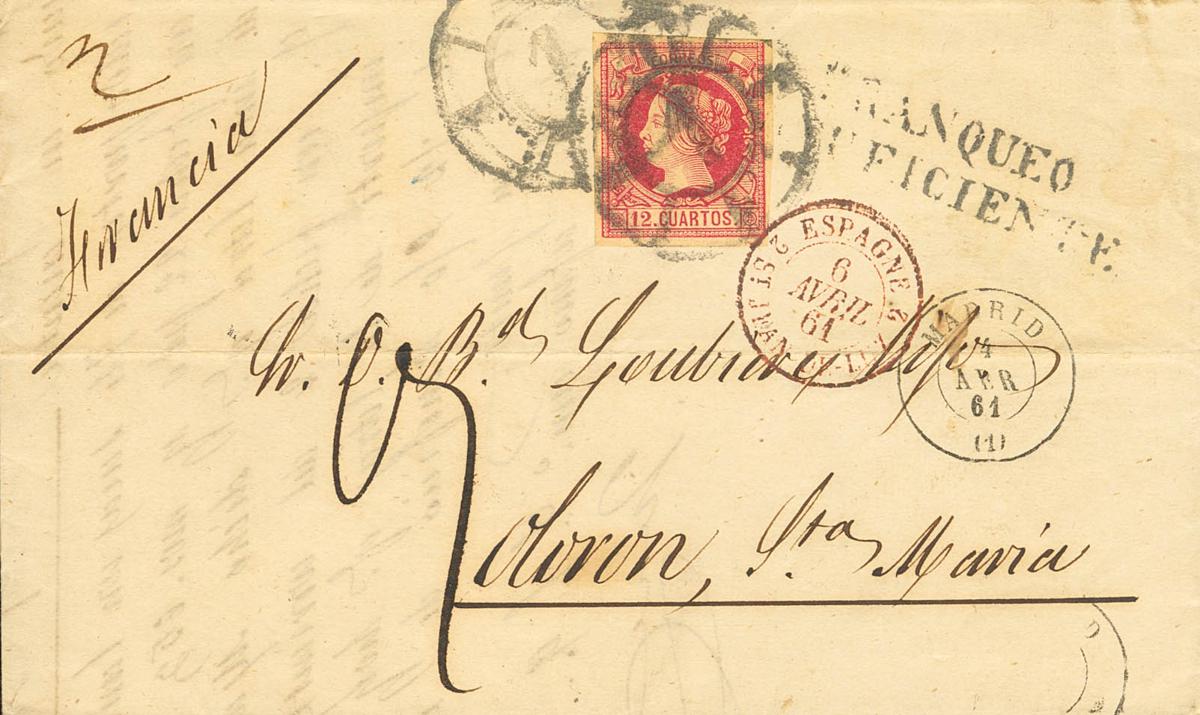 Francia
CORREOS
12. CUARTOS.
FRANQUEO
UFICIENTE.
2 ESPAGNE 2
6
AVRIL
61
MADRID
4
ABR
61
(1)
Sr. D. Bd
Oloron, Sta Maria
D